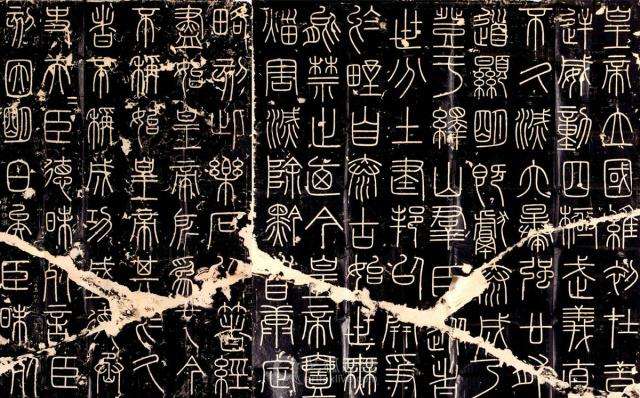 皇帝立國維初在昔
逆威動四極武義直
不久滅六暴強廿有
道顯明既獻泰成乃
登于繹山群臣從者
世分土建邦以開爭
於野自泰古始世無
能禁止廼今皇帝壹
災害滅除黔首康定
略刻此樂石以著經
盡始皇帝所為也今
不稱始皇帝其於久
者不稱成功盛德
史夫臣德昧死言臣
刻因明白矣臣昧死